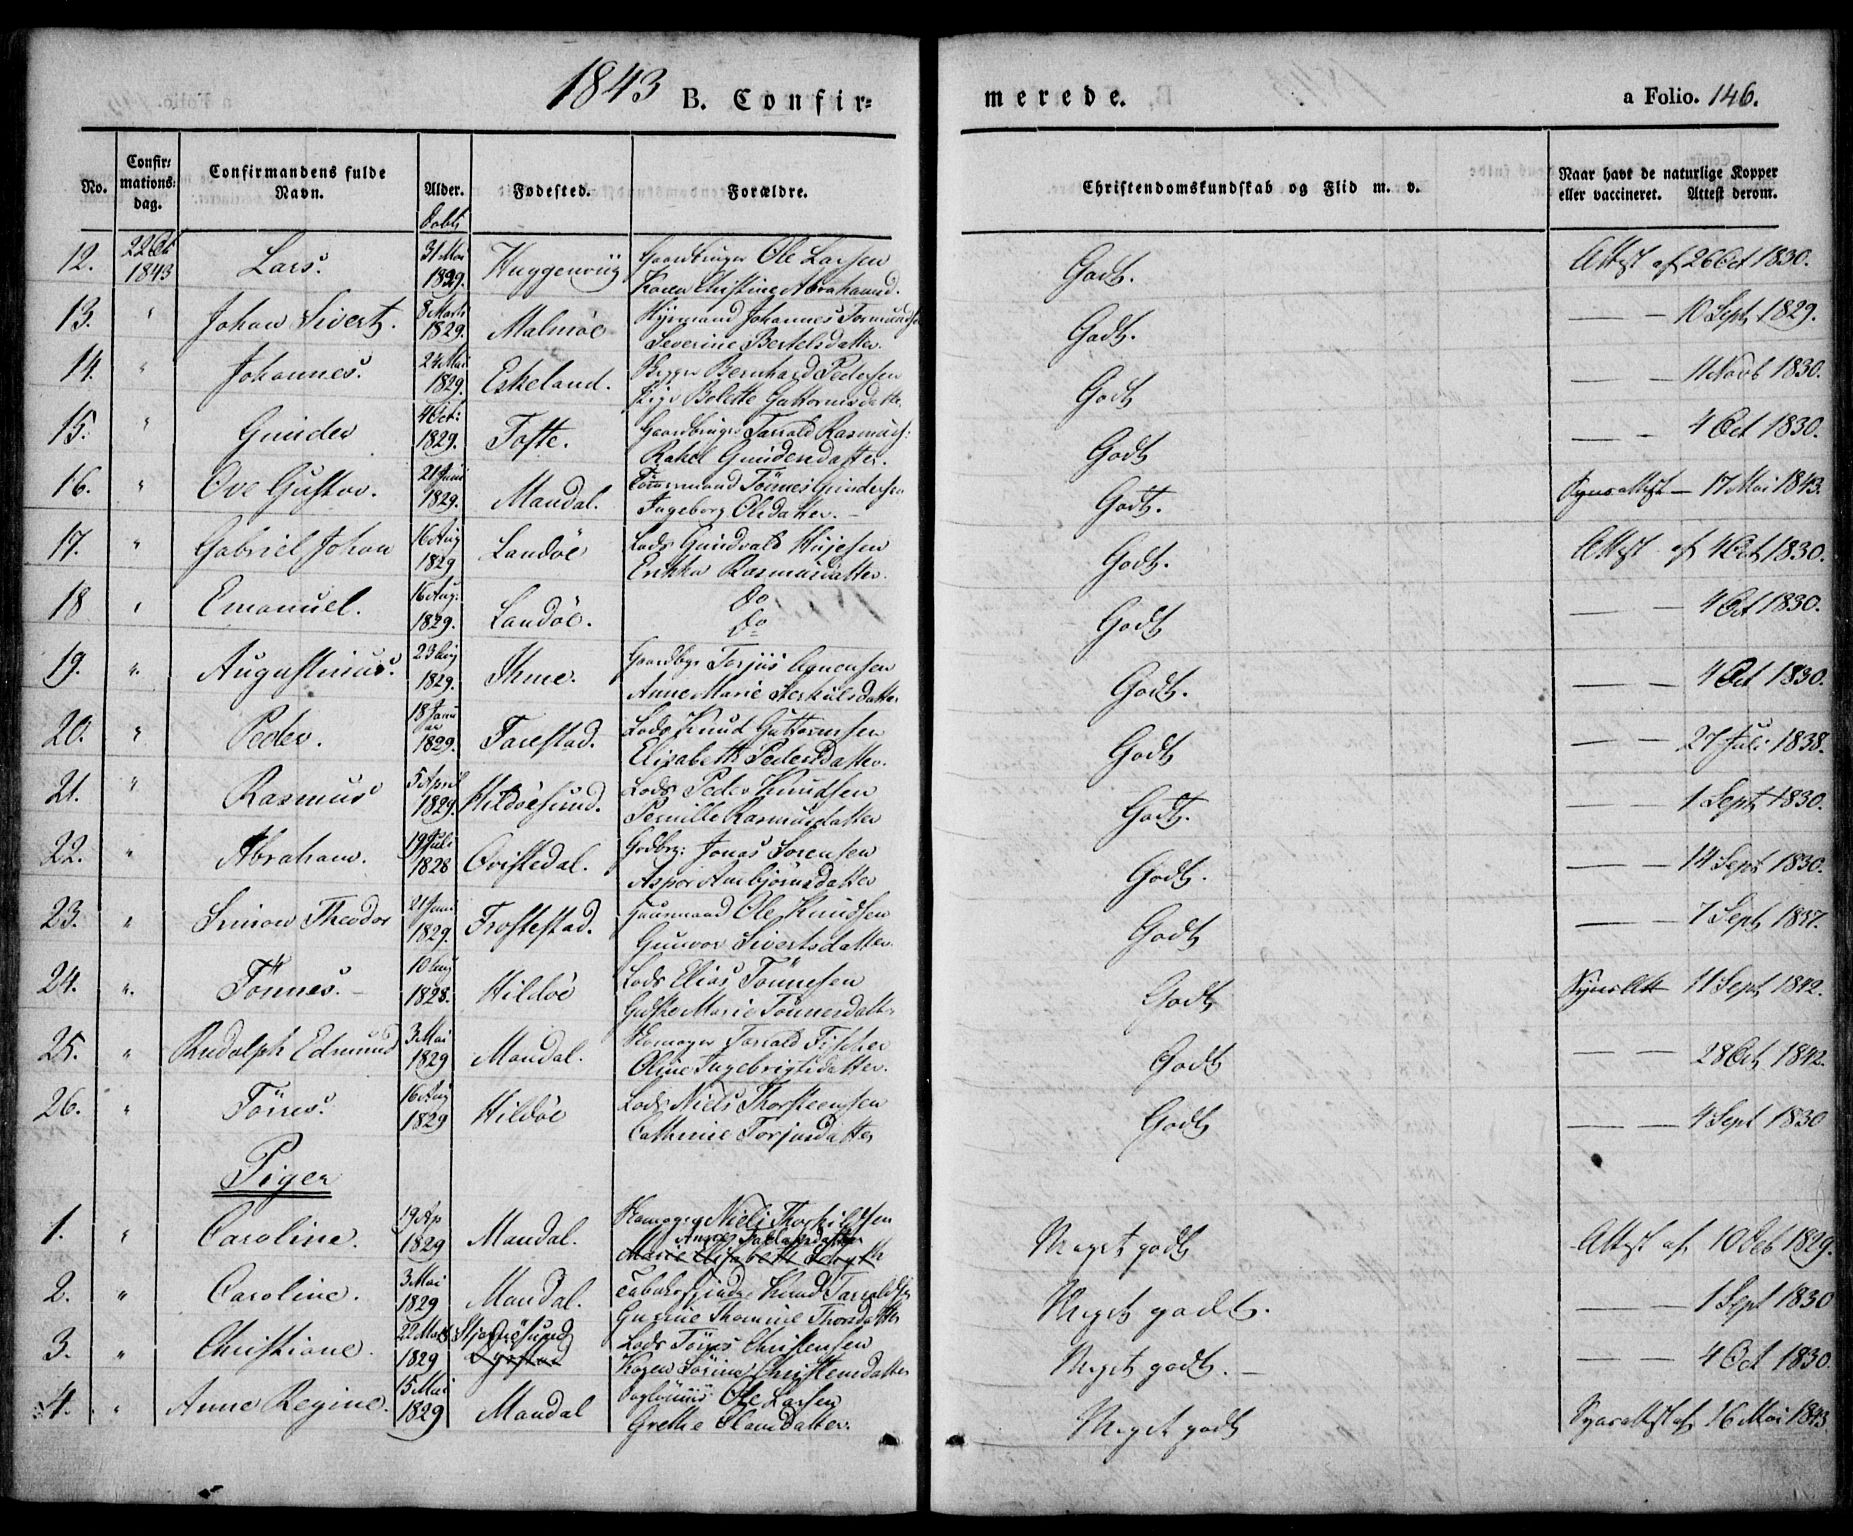 1843 B. Confirmerede. a Folio. 146.
No. Confirmationsdag. Confirmandens fulde Navn. Alder. Fødested. Forældre. Christendomskundskab og Flid m. v. Naar havt de naturlige Kopper eller vaccineret. Attest derom.
Døbt
12. 22 Oct 1843 Lars. 31 Mai 1829. Huggenviig Gaardbruger Ole Larsen Godt. Attest af 26 Oct 1830.
Karen Christine Abrahamsd.
13. " Johan Sivert. 8 Marts 1829. Malmøe Johannes Tormundsen Godt. — — 10 Sept 1829.
Severine Bertelsdatter.
14. " Johannes. 24 Mai 1829. Eskeland. Bernhard Pedersen Godt — — 11 Novb 1830.
Pige Bolette Guttormsdatter
15. " Gunder 4 Oct: 1829. Tofte. Gaardbruger Tarrald Rasmus: Godt — — 4 Oct 1830.
Rakel Gundersdatter.
16. " Ove Gustav. 21 Juni 1829. Mandal. Tømmermand Tönnes Gundersen Godt. Synsattest — 17 Mai 1843.
Ingeborg Olsdatter. —
17. " Gabriel Johan 16 Aug 1829 Landøe Lods Gundvald Godt. Attest af 4 Oct 1830.
Erikka Rasmusdatter.
18 " Emanuel. 16 Aug. 1829. Landøe. do Godt — — 4 Oct 1830.
do
19. " Augustinus. 23 Aug 1829. Ihme. Gaardbr Terjus Aanensen Godt. — — 4 Oct 1830.
Anne Marie Aeskilsdatter
20. " Peder. 18 Januar 1829. Farestad. Lods Knud Guttormsen Godt — — 27 Juli 1838.
Elisabeth Pedersdatter.
21. " Rasmus 5 April 1829. Hildøesund. Lods Peder Knudsen Godt. — — 1 Sept 1830.
Pernille Rasmusdatter
22. " Abraham. 19 Juli 1828 Ovistedal. Gdbrg: Jonas Sorensen Godt. — — 14 Sept 1830.
Asper Anbjörnsdatter
23. " Simon Theodor 21 Juni 1829. Frostestad. Huusmand Ole Knudsen Godt — — 7 Sept 1837.
Gunvor Sivertsdatter.
24. ". Tönnes. — 10 Aug 1828. Hildøe Lods Elias Tönnesen Godt Syns Att 11 Sept 1842.
Marie Tönnesdatter
25. " Rudolph Edmund 3 Mai 1829 Mandal. Skomager Tarrald Fischer Godt — — 28 Oct 1842.
Oline Ingebrigtsdatter.
26. " Törres. 16 Aug 1829 Hildøe Lods Niels Thorsteensen Godt — — 4 Sept 1830
Cathrine Torjusdatter
Piger
1. " Caroline. 19 Ap 1829 Mandal. Skomager Niels Thorkildsen Meget godt Attest af 10 Oct 1829.
Anne Tarlaksdatter
Marie Elisabeth
2. " Caroline. 3 Mai 1829 Mandal. Knud Tarraldsen Meget godt. — — 1 Sept 1830
Gurine Thomine Thorsdatter
3. " Christiane. 22 Marts 1829 Stjernøsund Lods Törres Christensen Meget godt. — — — 4 Oct 1830.
Karen Sörine Christensdatter
4. " Anne Regine. 15 Mai 1829 Mandal Ole Larsen Meget godt Synsattest af 16 Mai 1843
Grethe Hansdatter.